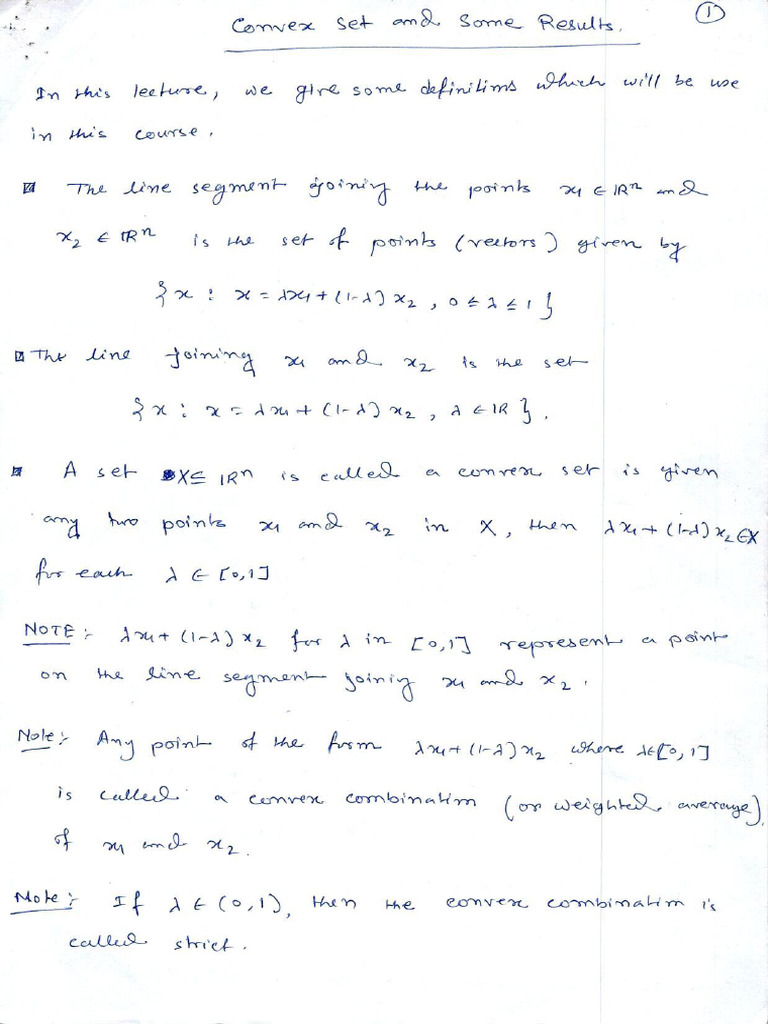 Convex Set and Some Results. ①
In this lecture, we give some definitions which will be use
in this course.
The line segment joining the points x₁ ∈ ℝⁿ and
x₂ ∈ ℝⁿ is the set of points (vectors) given by
{x : x = λx₁ + (1-λ) x₂ , 0 ≤ λ ≤ 1}
The line joining x₁ and x₂ is the set
{x : x = λx₁ + (1-λ) x₂ , λ ∈ ℝ}.
A set X ⊆ ℝⁿ is called a convex set is given
any two points x₁ and x₂ in X, then λx₁ + (1-λ) x₂ ∈ X
for each λ ∈ [0,1]
NOTE :- λx₁ + (1-λ) x₂ for λ in [0,1] represent a point
on the line segment joinig x₁ and x₂.
Note :- Any point of the form λx₁ + (1-λ) x₂ where λ∈[0,1]
is called a convex combination (or weighted average)
of x₁ and x₂.
Note :- If λ ∈ (0,1), then the convex combination is
called strict.